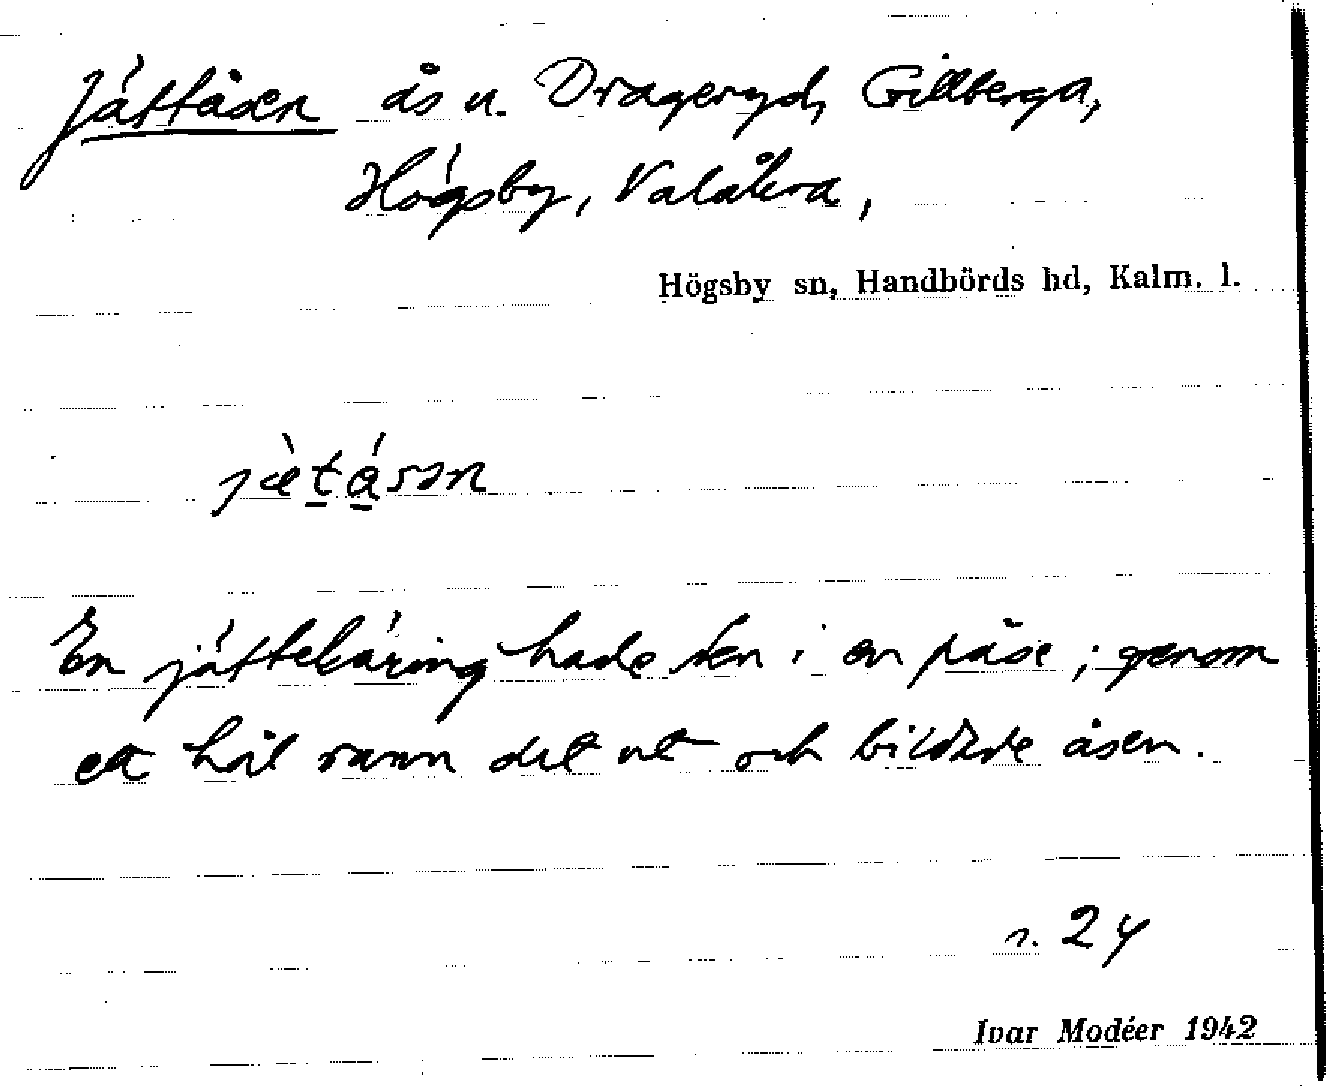 Jättåsen ås u. Drageryd, Gillberga,
Högsby, Valåkra,
Högsby sn, Handbörds hd, Kalm. l.
En jättekäring hade den i en påse; genom
ett hål rann det ut och bildade åsen.
s. 24
Ivar Modéer 1942